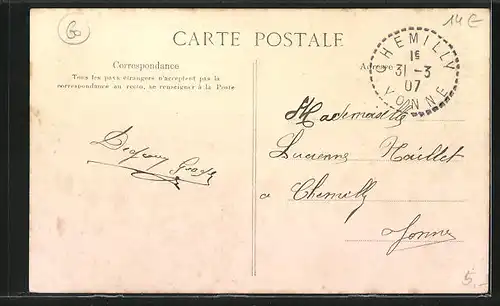 60
14 €
CARTE POSTALE
Correspondance
Tous les pays étrangers n'acceptent pas la
correspondance au recto, se renseigner à la Poste
Adresse
CHEMILLY
1E
31-3
07
YONNE
Mademoiselle
Lucienne Naillet
a Chemilly
Yonne
5.-